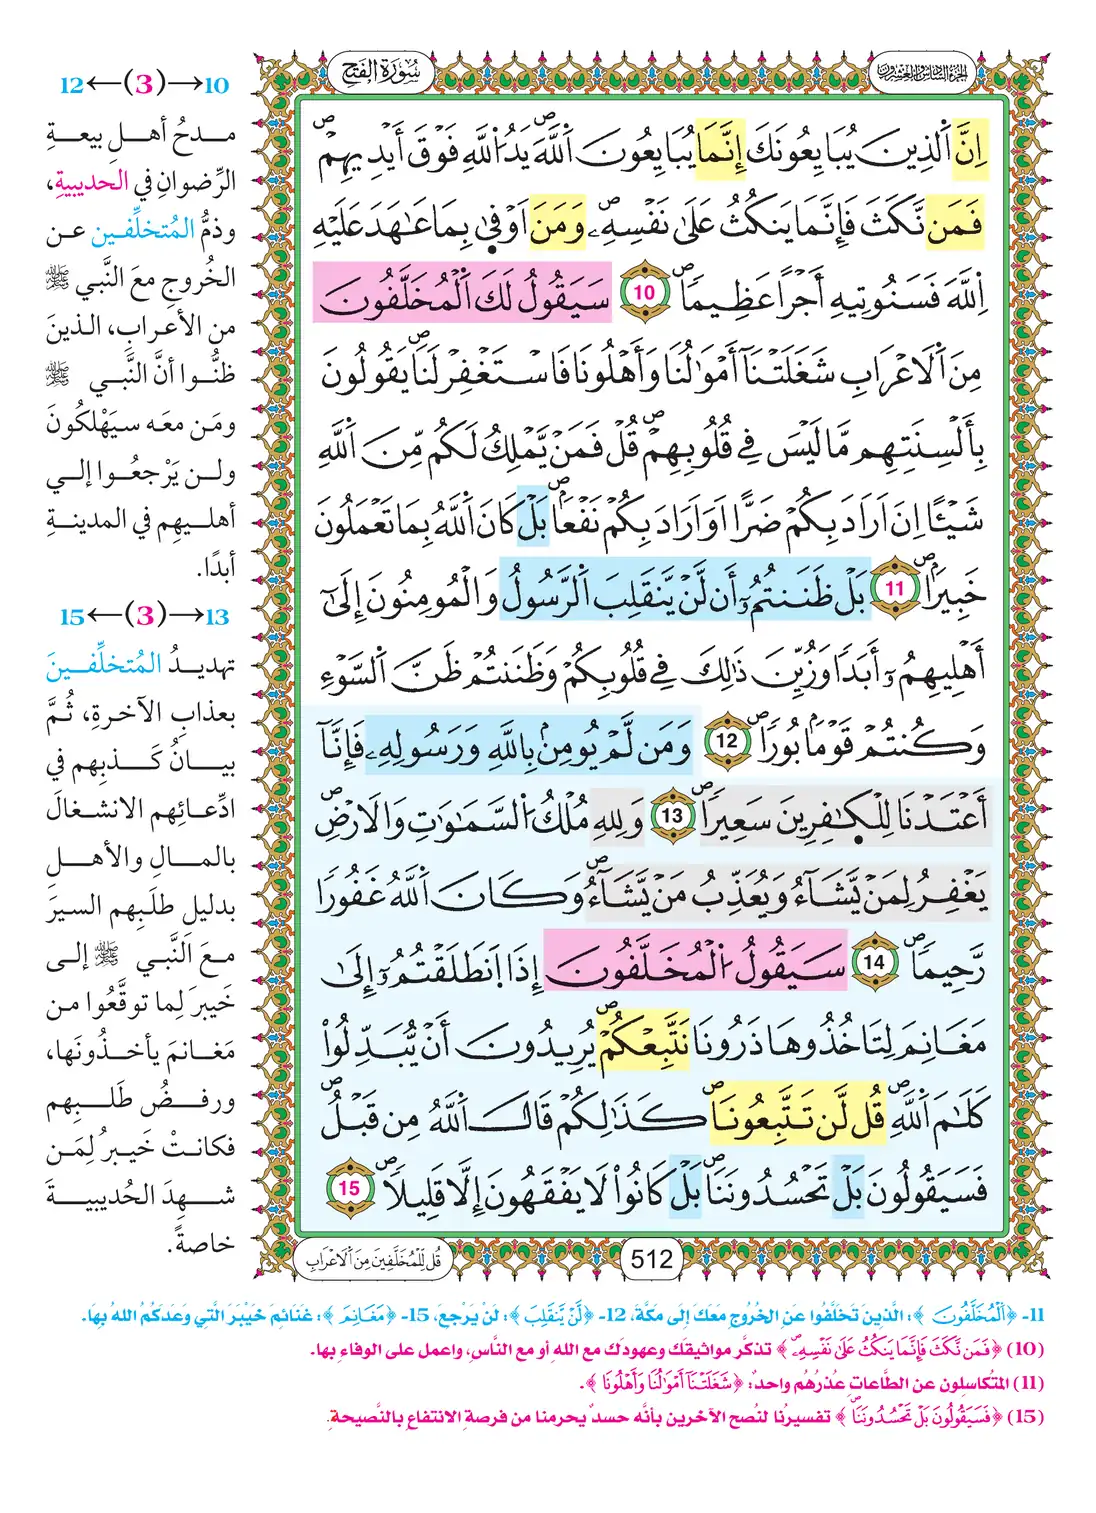 سُورَةُ الفَتْحِ
الجزء السادس والعشرون
إِنَّ اَ۬لذِينَ يُبَايِعُونَكَ إِنَّمَا يُبَايِعُونَ اَ۬للَّهَۖ يَدُ اُ۬للَّهِ فَوْقَ أَيْدِيهِمْۖ
فَمَن نَّكَثَ فَإِنَّمَا يَنكُثُ عَلَىٰ نَفْسِهِۦۖ وَمَنَ اَوْفَىٰ بِمَا عَٰهَدَ عَلَيْهِ
اِ۬للَّهَ فَسَنُوتِيهِ أَجْراً عَظِيماًۖ 10 سَيَقُولُ لَكَ اَ۬لْمُخَلَّفُونَ
مِنَ اَ۬لَاعْرَابِ شَغَلَتْنَآ أَمْوَٰلُنَا وَأَهْلُونَا فَاسْتَغْفِرْ لَنَاۖ يَقُولُونَ
بِأَلْسِنَتِهِم مَّا لَيْسَ فِے قُلُوبِهِمْۖ قُلْ فَمَنْ يَّمْلِكُ لَكُم مِّنَ اَ۬للَّهِ
شَيْـًٔا اِنَ اَرَادَ بِكُمْ ضَرّاً اَوَ اَرَادَ بِكُمْ نَفْعاَۢۖ بَلْ كَانَ اَ۬للَّهُ بِمَا تَعْمَلُونَ
خَبِيراًۖ 11 بَلْ ظَنَنتُمُۥٓ أَن لَّنْ يَّنقَلِبَ اَ۬لرَّسُولُ وَالْمُومِنُونَ إِلَىٰٓ
أَهْلِيهِمُۥٓ أَبَداً وَزُيِّنَ ذَٰلِكَ فِے قُلُوبِكُمْ وَظَنَنتُمْ ظَنَّ اَ۬لسَّوْءِ
وَكُنتُمْ قَوْماَۢ بُوراًۖ 12 وَمَن لَّمْ يُومِنۢ بِاللَّهِ وَرَسُولِهِۦ فَإِنَّآ
أَعْتَدْنَا لِلْكَٰفِرِينَ سَعِيراًۖ 13 وَلِلهِ مُلْكُ اُ۬لسَّمَٰوَٰتِ وَالَارْضِۖ
يَغْفِرُ لِمَنْ يَّشَآءُ وَيُعَذِّبُ مَنْ يَّشَآءُۖ وَكَانَ اَ۬للَّهُ غَفُوراً
رَّحِيماًۖ 14 سَيَقُولُ اُ۬لْمُخَلَّفُونَ إِذَا اَ۪نطَلَقْتُمُۥٓ إِلَىٰ
مَغَانِمَ لِتَاخُذُوهَا ذَرُونَا نَتَّبِعْكُمْۖ يُرِيدُونَ أَنْ يُّبَدِّلُواْ
كَلَٰمَ اَ۬للَّهِۖ قُل لَّن تَتَّبِعُونَاۖ كَذَٰلِكُمْ قَالَ اَ۬للَّهُ مِن قَبْلُۖ
فَسَيَقُولُونَ بَلْ تَحْسُدُونَنَاۖ بَلْ كَانُواْ لَا يَفْقَهُونَ إِلَّا قَلِيلاًۖ 15
512
قُل لِّلْمُخَلَّفِينَ مِنَ اَ۬لَاعْرَابِ
10→(3)←12
مدحُ أهلِ بيعةِ
الرِّضوانِ في الحديبيةِ،
وذمُّ المُتخلِّفين عن
الخُروجِ معَ النَّبي ﷺ
من الأعرابِ، الذينَ
ظنُّوا أنَّ النَّبي ﷺ
ومَن معَه سيَهْلكُونَ
ولن يَرْجعُوا إلى
أهليهِم في المدينةِ
أبدًا.
13→(3)←15
تهديدُ المُتخلِّفينَ
بعذابِ الآخرةِ، ثُمَّ
بيانُ كَذبِهم في
ادِّعائِهم الانشغالَ
بالمالِ والأهلِ
بدليلِ طلَبِهم السيرَ
معَ النَّبي ﷺ إلى
خَيبرَ لِما توقَّعُوا من
مَغانمَ يأخذُونَها،
ورفضُ طلَبِهم
فكانتْ خَيبرُ لِمَن
شهِدَ الحُديبيةَ
خاصةً.
11- ﴿اَ۬لْمُخَلَّفُونَ﴾: الَّذِينَ تَخَلَّفُوا عَنِ الخُرُوجِ مَعَكَ إِلَى مَكَّةَ، 12- ﴿لَّنْ يَّنقَلِبَ﴾: لَنْ يَرْجِعَ، 15- ﴿مَغَانِمَ﴾: غَنَائِمَ خَيْبَرَ الَّتِي وَعَدَكُمُ اللهُ بِهَا.
(10) ﴿فَمَن نَّكَثَ فَإِنَّمَا يَنكُثُ عَلَىٰ نَفْسِهِۦۖ﴾ تذكَّر مواثيقَك وعهودَك مع اللهِ أو مع النَّاسِ، واعمل على الوفاءِ بها.
(11) المتُكاسِلون عن الطَّاعاتِ عُذرُهُم واحدٌ: ﴿شَغَلَتْنَآ أَمْوَٰلُنَا وَأَهْلُونَا﴾.
(15) ﴿فَسَيَقُولُونَ بَلْ تَحْسُدُونَنَاۖ﴾ تفسيرُنا لنُصحِ الآخرين بأنَّه حسدٌ يحرمنا من فرصةِ الانتفاعِ بالنَّصيحةِ.